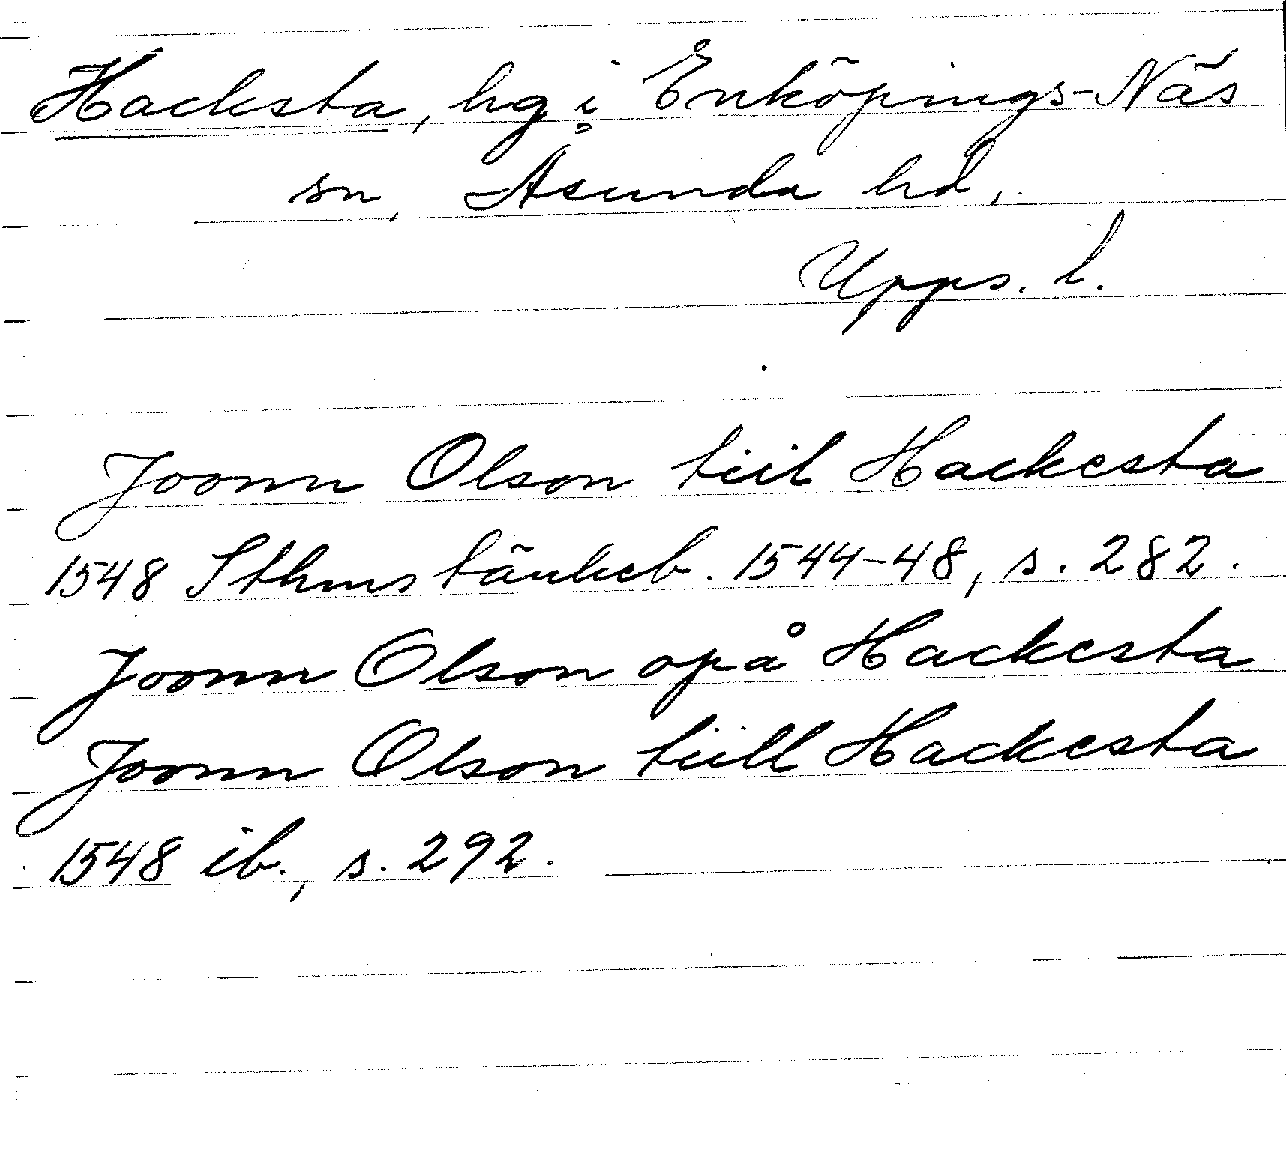 Hacksta, hg i Enköpings-Näs
sn, Åsunda hd,
Upps. l.
Joonn Olson tiil Hackesta
1548 Sthms tänkeb. 1544-48, s. 282.
Joonn Olson opå Hackesta
Joonn Olson tiill Hackesta
1548 ib., s. 292.